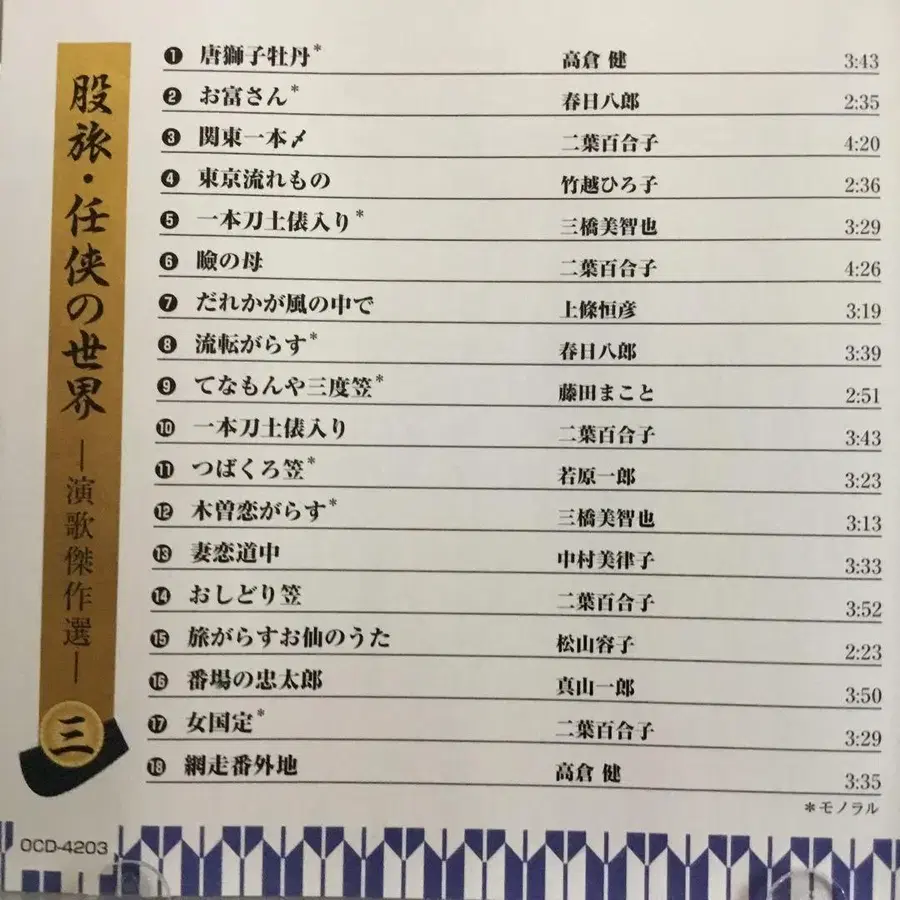 股旅・任侠の世界 ―演歌傑作選― 三
❶ 唐獅子牡丹* 高倉 健 3:43
❷ お富さん* 春日八郎 2:35
❸ 関東一本〆 二葉百合子 4:20
❹ 東京流れもの 竹越ひろ子 2:36
❺ 一本刀土俵入り* 三橋美智也 3:29
❻ 瞼の母 二葉百合子 4:26
❼ だれかが風の中で 上條恒彦 3:19
❽ 流転がらす* 春日八郎 3:39
❾ てなもんや三度笠* 藤田まこと 2:51
❿ 一本刀土俵入り 二葉百合子 3:43
⓫ つばくろ笠* 若原一郎 3:23
⓬ 木曽恋がらす* 三橋美智也 3:13
⓭ 妻恋道中 中村美律子 3:33
⓮ おしどり笠 二葉百合子 3:52
⓯ 旅がらすお仙のうた 松山容子 2:23
⓰ 番場の忠太郎 真山一郎 3:50
⓱ 女国定* 二葉百合子 3:29
⓲ 網走番外地 高倉 健 3:35
*モノラル
OCD-4203